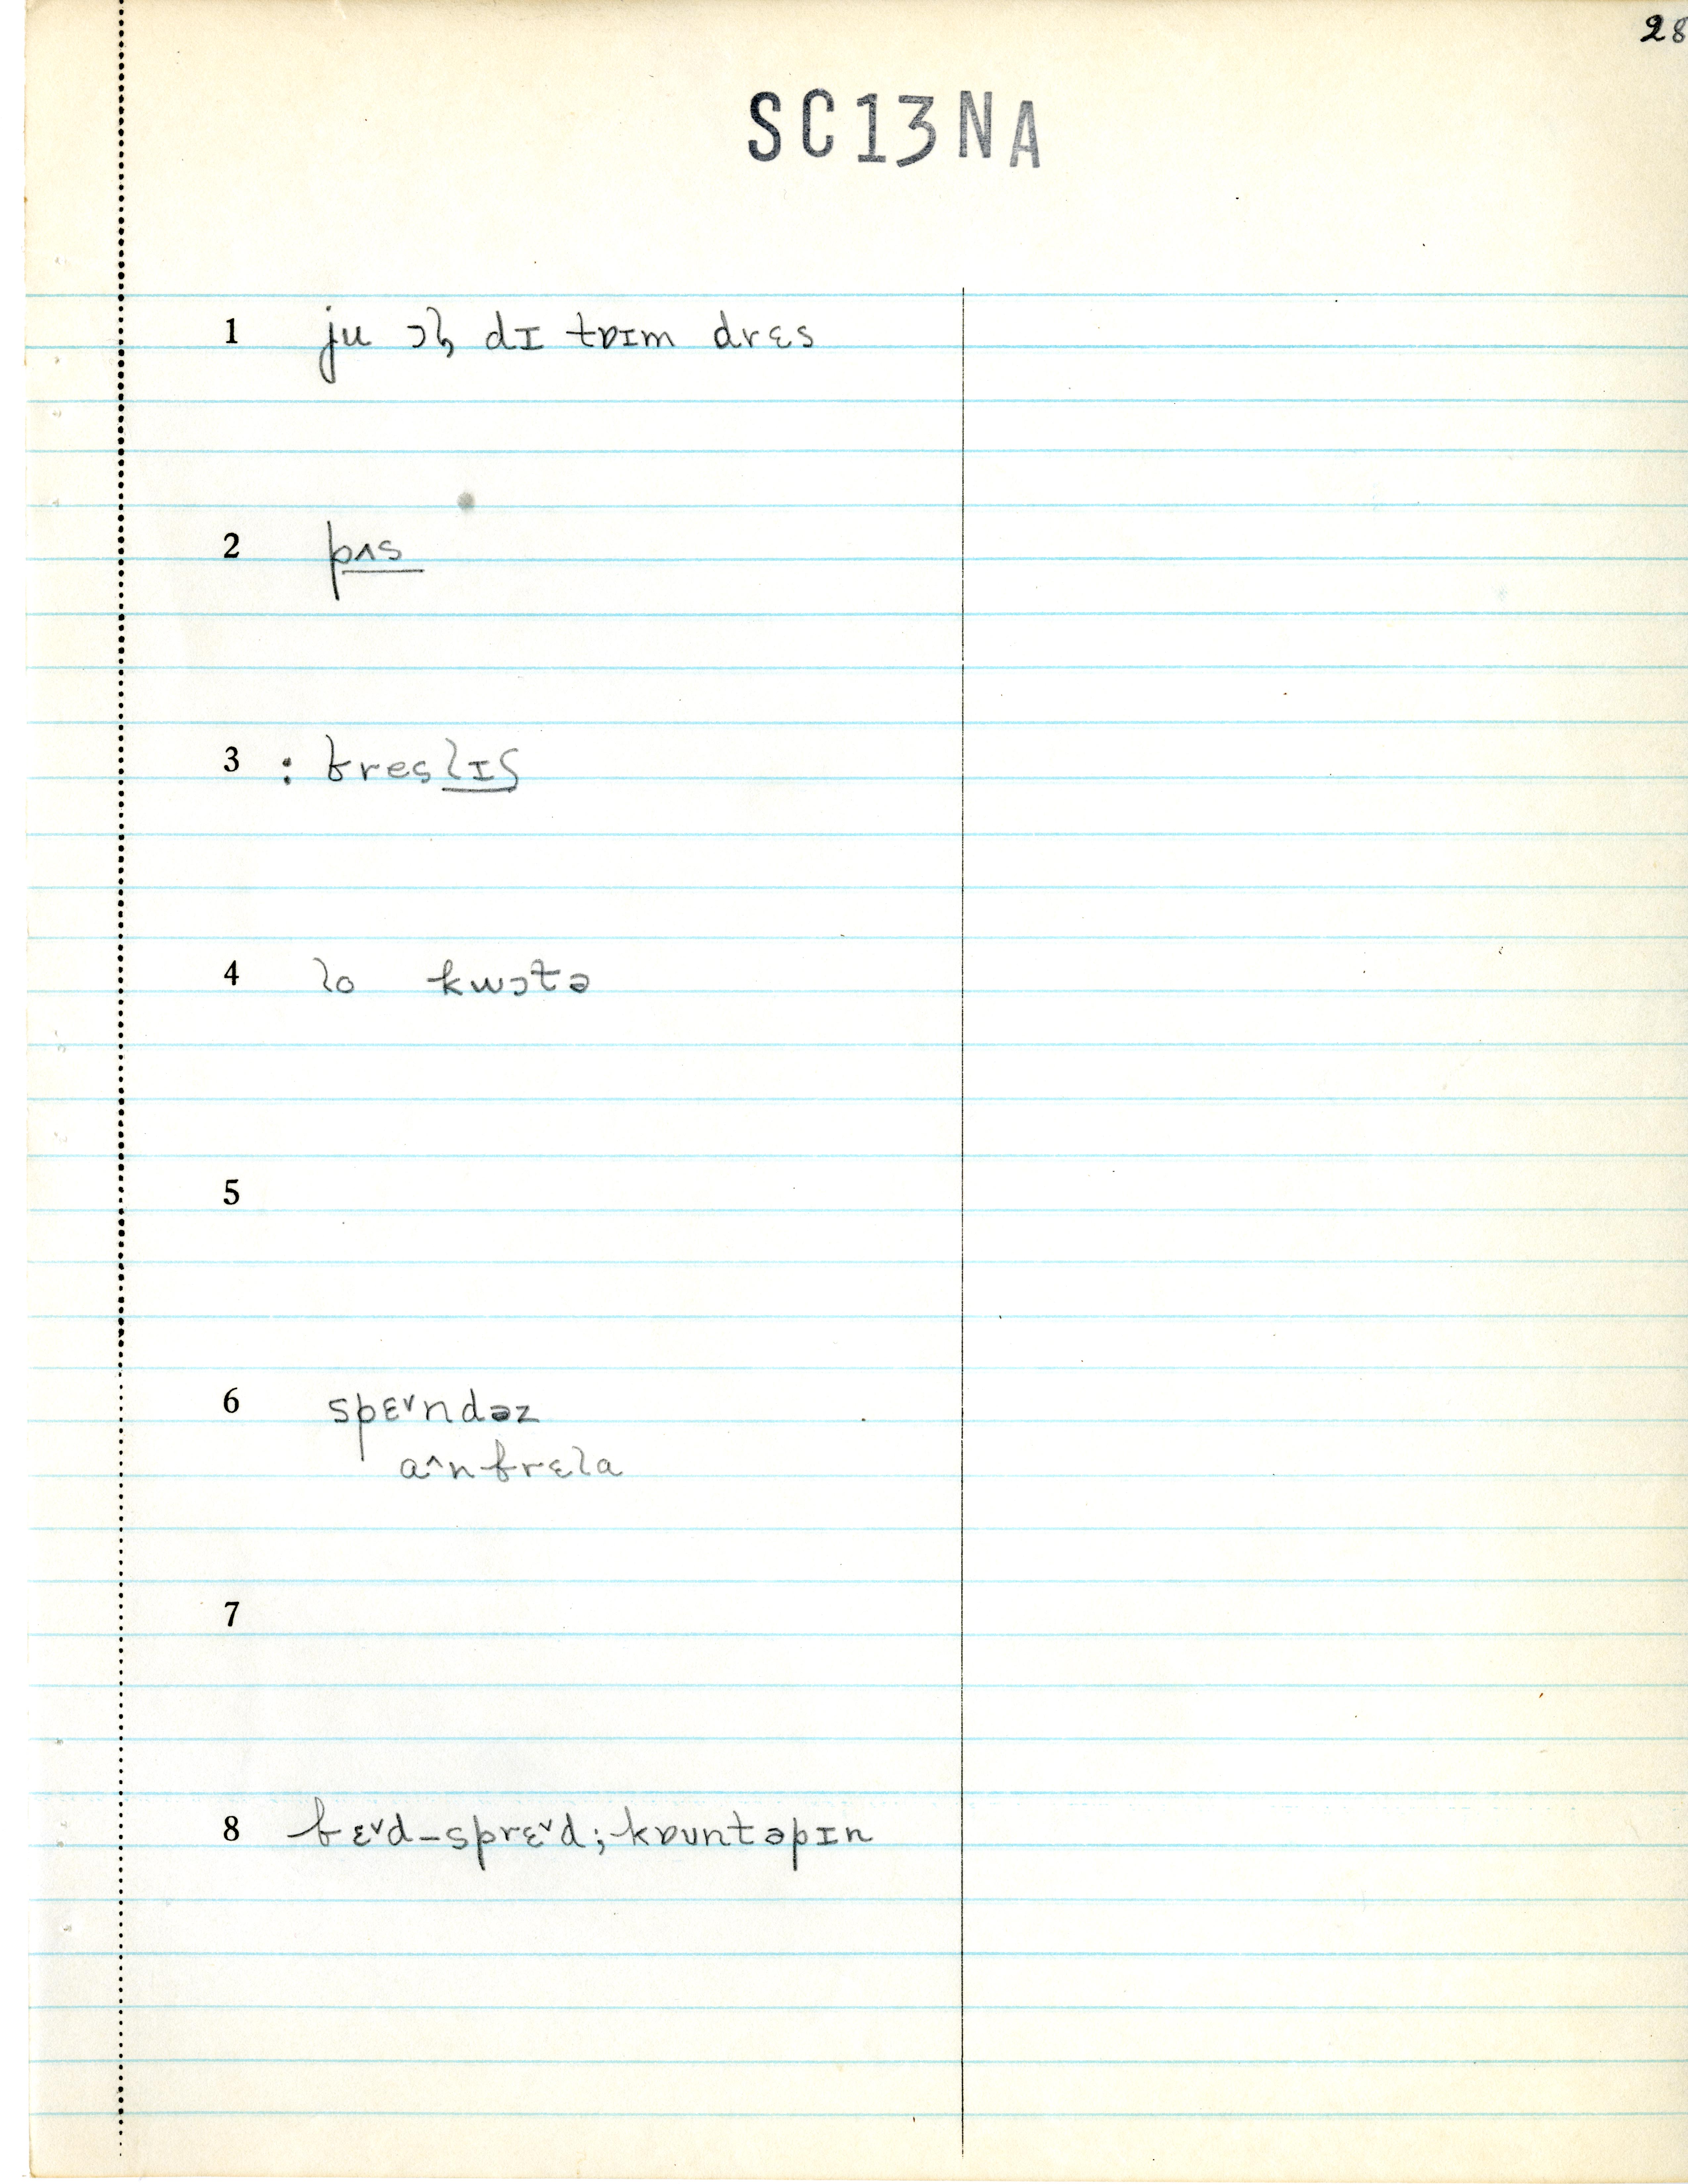 28
SC13NA
1 ju ɔl̥ dɪ tɒɪm drɛs
2 pʌs
3 : ɓreslɪs
4 lo kwɔtə
5
6 spɛ˅ndəz
a˄nɓrɛla
7
8 ɓɛ˅d-sprɛ˅d; kɒuntəpɪn